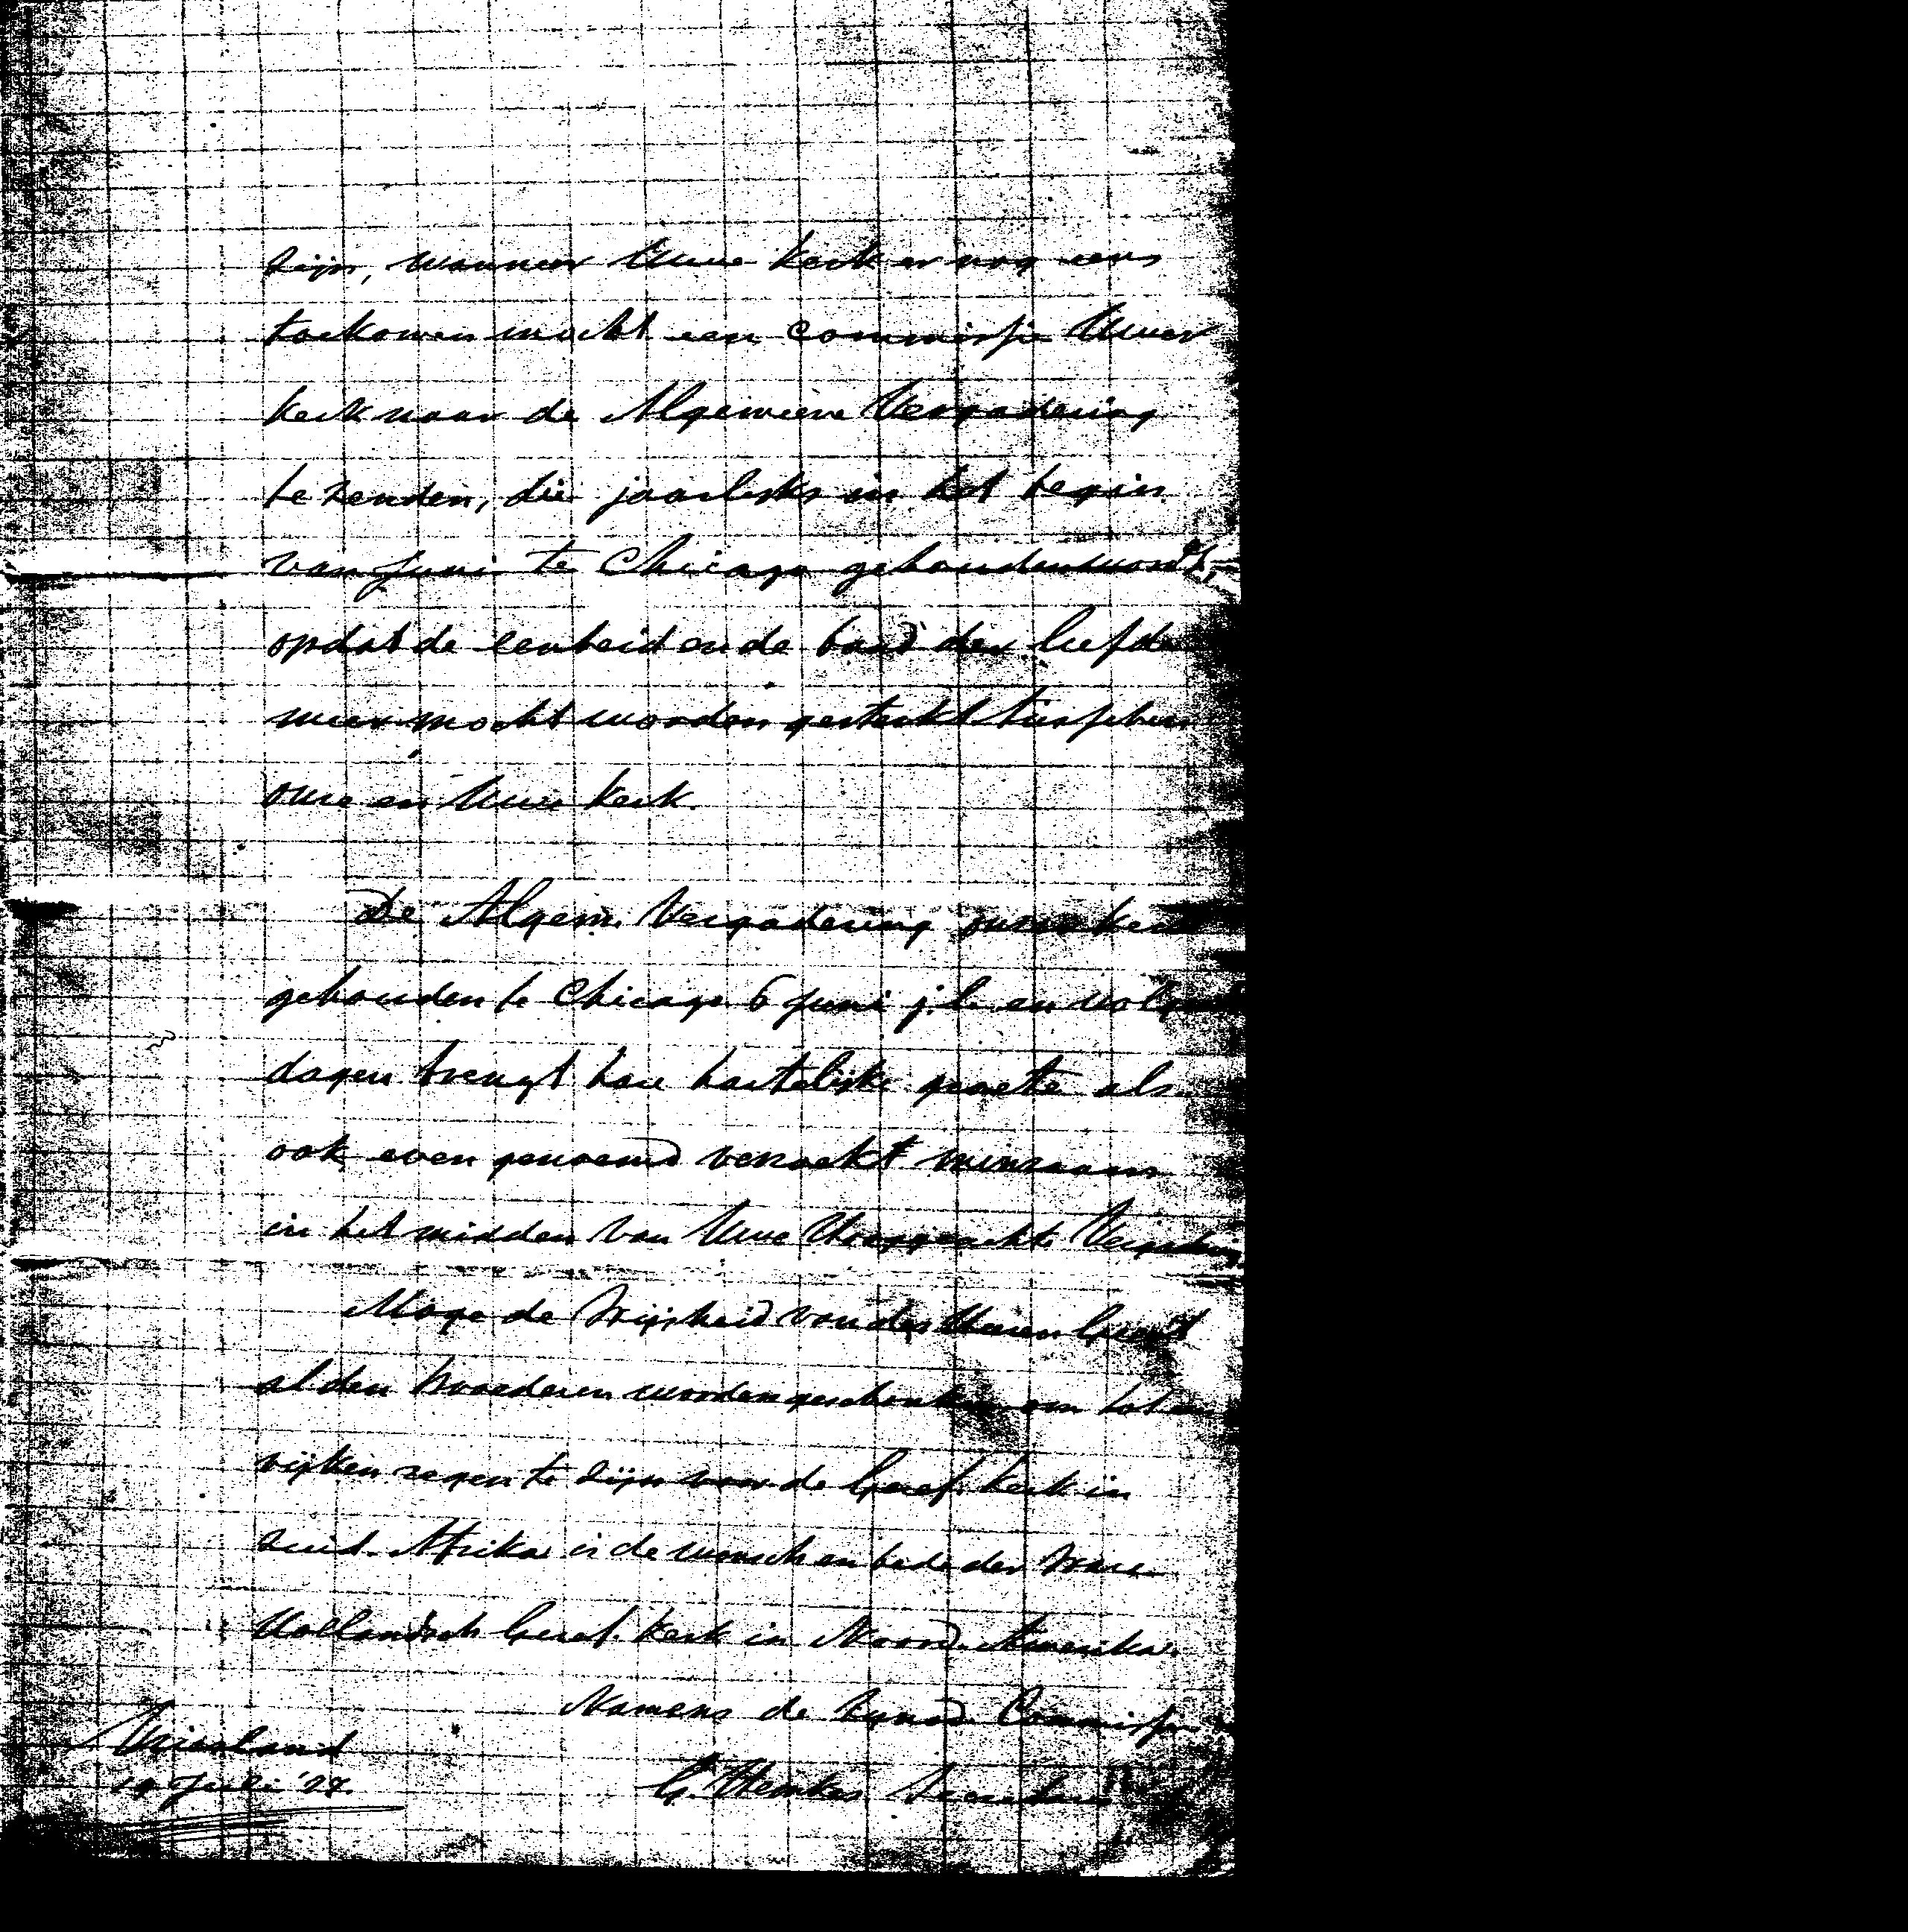 zijn, wanneer Uwe kerk er nog eens
toekomen mocht een commissie Uwer
kerk naar de Algemeene Vergadering
te zenden, die jaarlijks in het begin
van Juni te Chicago gehouden wordt,
opdat de eenheid en de band der liefde
meer mocht worden gesterkt tusschen
onze en Uwe kerk.
De Algem. Vergadering onzer kerk
gehouden te Chicago 6 Juni j.l. en volgende
dagen brengt hare hartelijke groete als
ook even genoemd verzoek minzaam
in het midden van Uwe Hooggeachte Vergadering
Moge de Wijsheid van den Heeren Geest
al den broederen worden geschonken om tot een
rijken zegen te zijn voor de Geref. kerk in
Zuid-Afrika is de wensch en bede der Ware
Hollandsch Geref. kerk in Noord-Amerika.
Namens de Synod. Commissie
Vriesland
19 Juli '27.
G. Hemkes